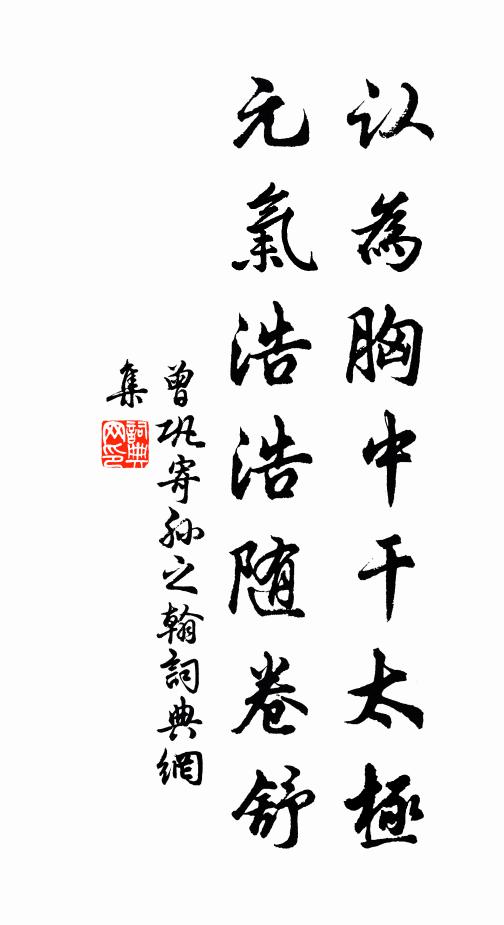 认為胸中干太極
元氣浩浩随卷舒
曾巩寄孙之翰詞典網
集
詞典
网印